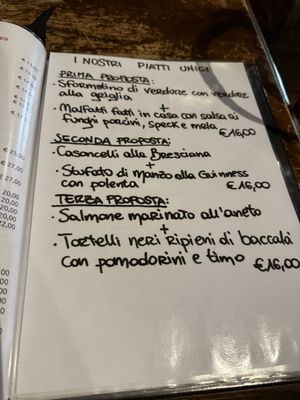 I NOSTRI PIATTI UNICI
PRIMA PROPOSTA:
• Sformatino di verdure con verdure
alla griglia
+
• Malfatti fatti in casa con salsa ai
funghi porcini, speck e mela €16,00
SECONDA PROPOSTA:
• Casoncelli alla Bresciana
+
• Stufato di manzo alla Guinness
con polenta €16,00
TERZA PROPOSTA:
• Salmone marinato all'aneto
+
• Tortelli neri ripieni di baccalà
con pomodorini e timo €16,00
€ 25,00
€ 27,00
€ 27,00
20,00
20,00
20,00
22,00